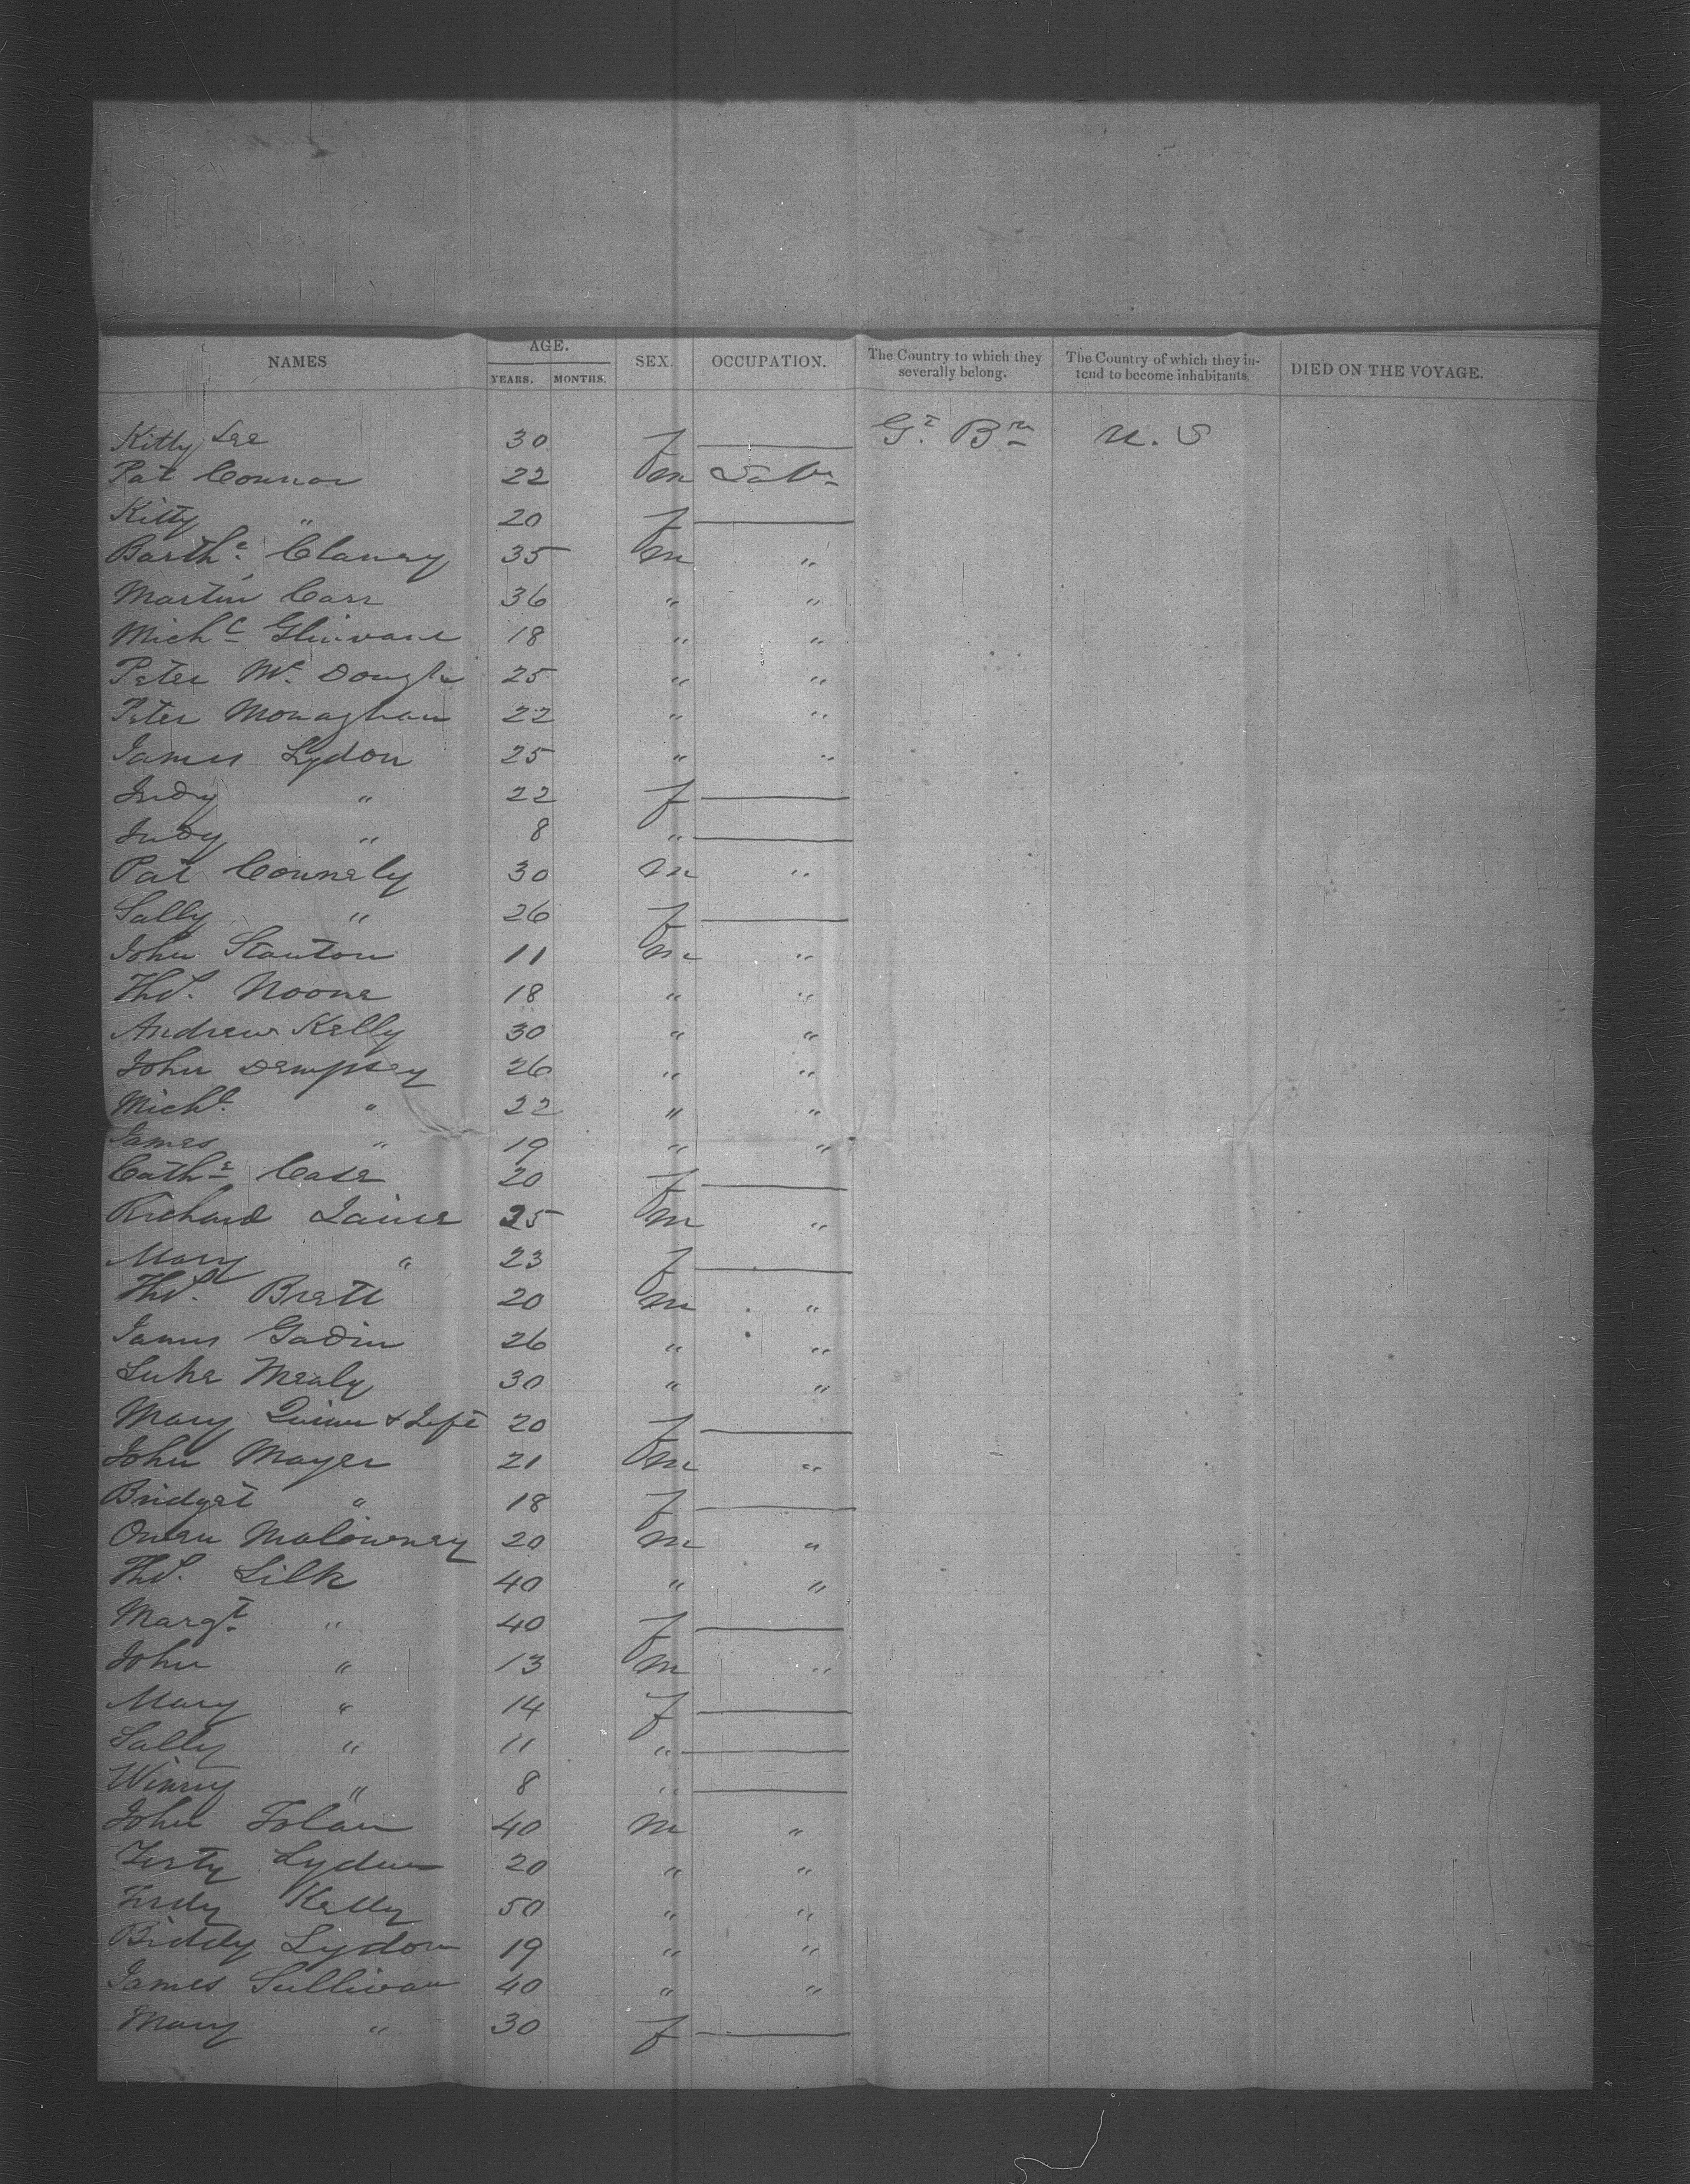 NAMES AGE. YEARS. MONTHS. SEX. OCCUPATION. The Country to which they severally belong. The Country of which they intend to become inhabitants. DIED ON THE VOYAGE.
Kitty Lee 30 f — Gt. Bn U. S
Pat Connor 22 m Lab
Kitty " 20 f —
Barthe. Clancy 35 m "
Martin Carr 36 " "
Michl 18 " "
Peter Mc. 25 " "
Peter Monaghan 22 " "
James Lydon 25 " "
Judy " 22 f —
Judy " 8 " —
Pat Connely 30 m "
Sally " 26 f —
John Stanton 11 m "
Thos. Noone 18 " "
Andrew Kelly 30 " "
John Dempsey 26 " "
Michl. " 22 " "
James " 19 " "
Cathe Case 20 f —
Richard 25 m "
Mary " 23 f —
Thos. Brett 20 m "
James Gadin 26 " "
Luke Mealy 30 " "
Mary Quinn & Inft 20 f —
John Mayer 21 m "
Bridget " 18 f —
Owen Malowney 20 m "
Thos. Silk 40 " "
Margt. " 40 f —
John " 13 m "
Mary " 14 f —
Sally " 11 " —
Winny " 8 " —
John Folan 40 m "
Festy Lydon 20 " "
Kelly 50 " "
Biddy Lydon 19 " "
James Sullivan 40 " "
Mary " 30 f —